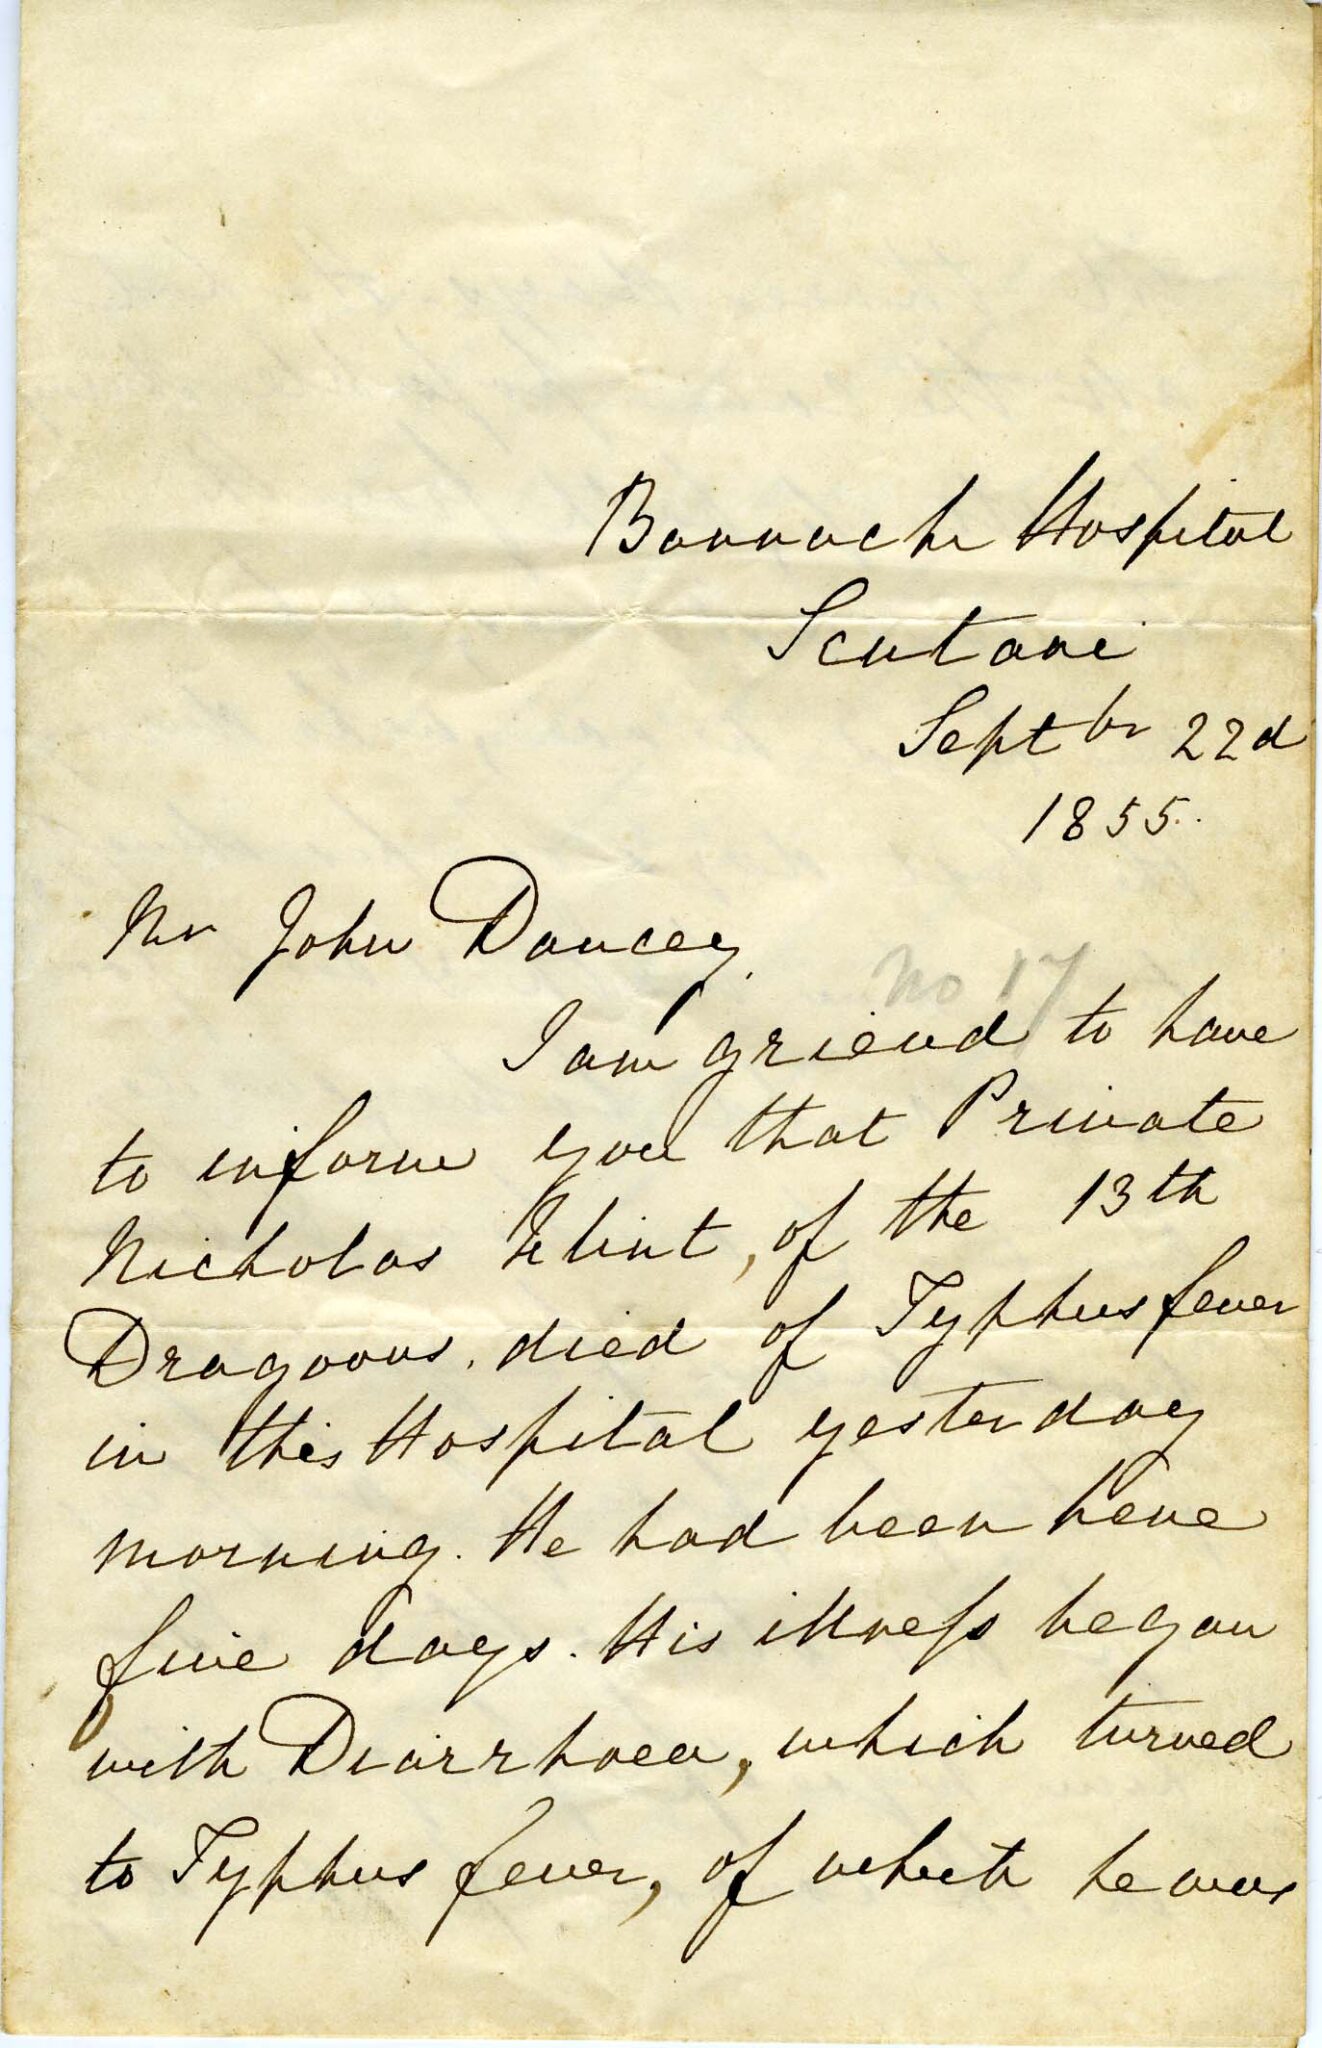 Barrack Hospital
Scutari
Septbr 22d
1855.
Mr John Dancey.
No 17
I am grieved to have
to inform you that Private
Nicholas Flint, of the 13th
Dragoons, died of Typhus fever
in this Hospital yesterday
morning. He had been here
five days. His illness began
with Diarrhoea, which turned
to Typhus fever, of which he was